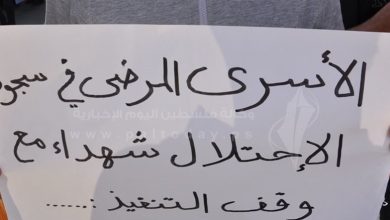 الأسرى المرضى في سجو
الإحتلال شهداء مع
وقف التنفيذ :.....
وكالة فلسطين اليوم الإخبارية